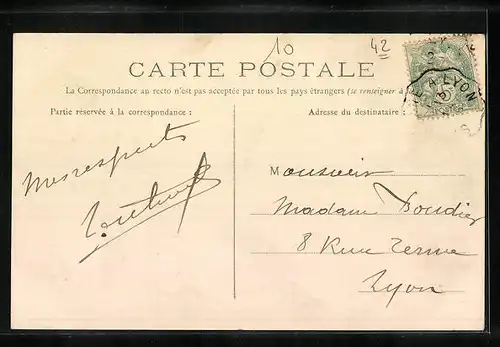 10
42
CARTE POSTALE
La Correspondance au recto n'est pas acceptée par tous les pays étrangers (se renseigner à
Partie réservée à la correspondance :
Adresse du destinataire :
A LYON
Mes respects
Monsieur
Madame
8 Rue Terme
Lyon